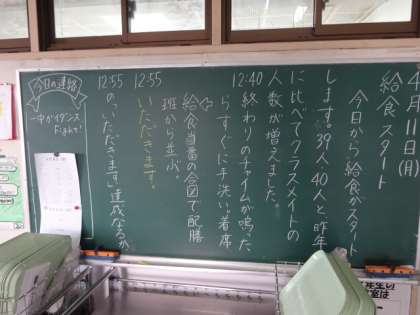 4月11日(月)
給食スタート
今日から給食がスタート
します。39人、40人と昨年
に比べてクラスメイトの
人数が増えました。
12:40 終わりのチャイムが鳴った
らすぐに手洗い、着席
給食当番の合図で配膳
班から並ぶ。
12:55 いただきます。
12:55 の“いただきます”達成なるか
今日の連絡
一中ガイダンス